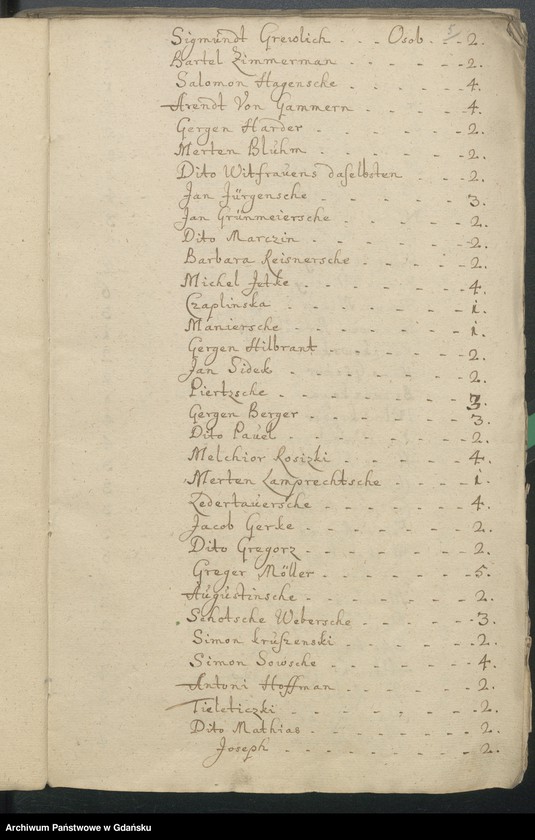 Sigmundt Grewlich - - - Osob. - - 2.
Bartel Zimmerman - - - - - 2.
Salomon Hagensche - - - - 4.
Arendt Von Gammern - - - - 4.
Gergen Harder - - - - - 2.
Merten Bluhm - - - - - 2.
Dito Witfrauens daselbsten - - - 2.
Jan Jürgensche - - - - - 3.
Jan Grünmeiersche - - - - 2.
Dito Marczin - - - - - - 2.
Barbara Reisnersche - - - - 2.
Michel Jetke - - - - - - 4.
Czaplinska - - - - - - i.
Maniersche - - - - - - i.
Gergen Hilbrant - - - - - 2.
Jan Sidek - - - - - - 2.
Piertzsche - - - - - - 3.
Gergen Berger - - - - - 3.
Dito Pauel - - - - - - 2.
Melchior Rosizki - - - - 4.
Merten Lamprechtsche - - - i.
Ledertauersche - - - - - 4.
Jacob Gerke - - - - - - 2.
Dito Gregorz - - - - - - 2.
Greger Möller - - - - - - 5.
Augustinsche - - - - - - 2.
Schotsche Webersche - - - - 3.
Simon Kruszenski - - - - 2.
Simon Sowsche - - - - - 4.
Antoni Hoffman - - - - - 2.
Tieleticzki - - - - - - 2.
Dito Mathias - - - - - - 2.
Joseph - - - - - - 2.
Archiwum Państwowe w Gdańsku